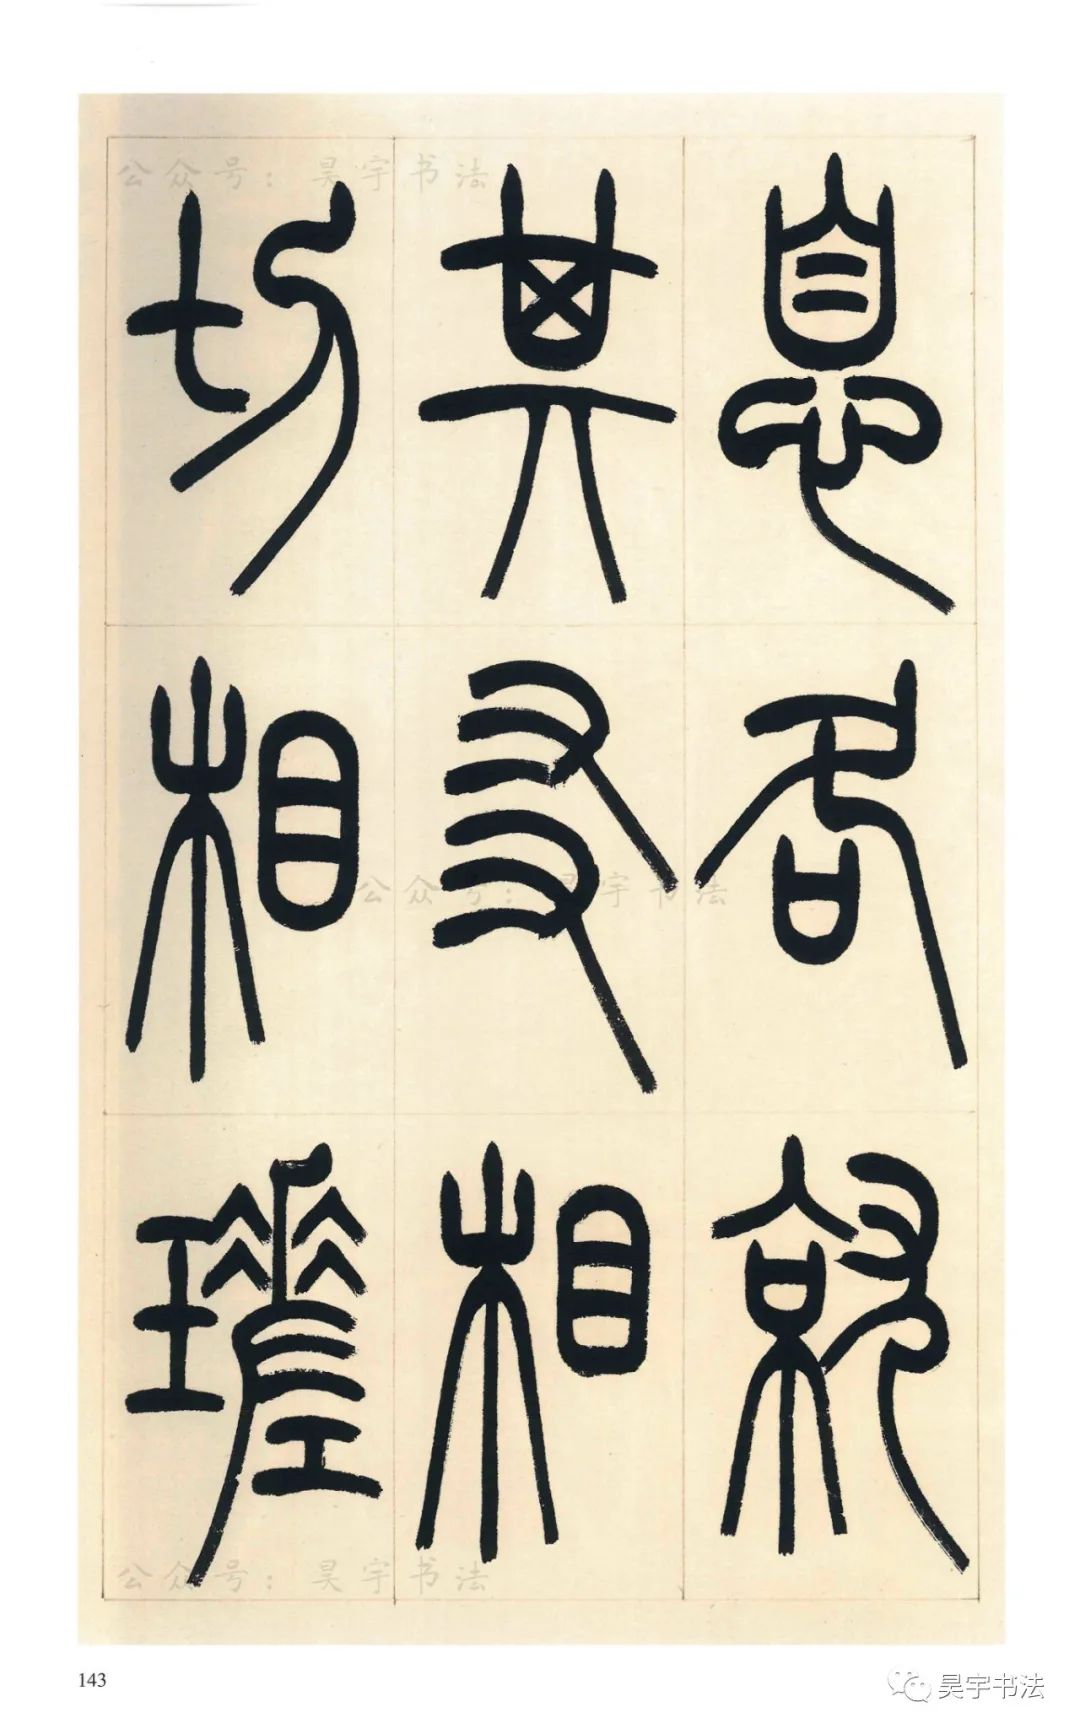 公众号：昊宇书法
息名就
其友相
切相瑳
公众号：昊宇书法
公众号：昊宇书法
143
昊宇书法